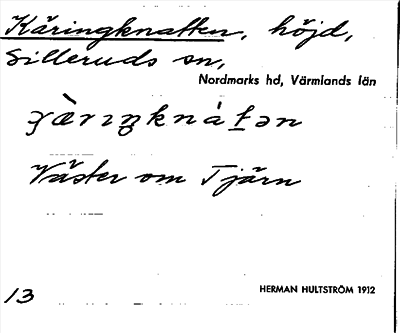 Käringknatten, höjd,
Silleruds sn,
Nordmarks hd, Värmlands län
Väster om Tjärn
HERMAN HULTSTRÖM 1912
13